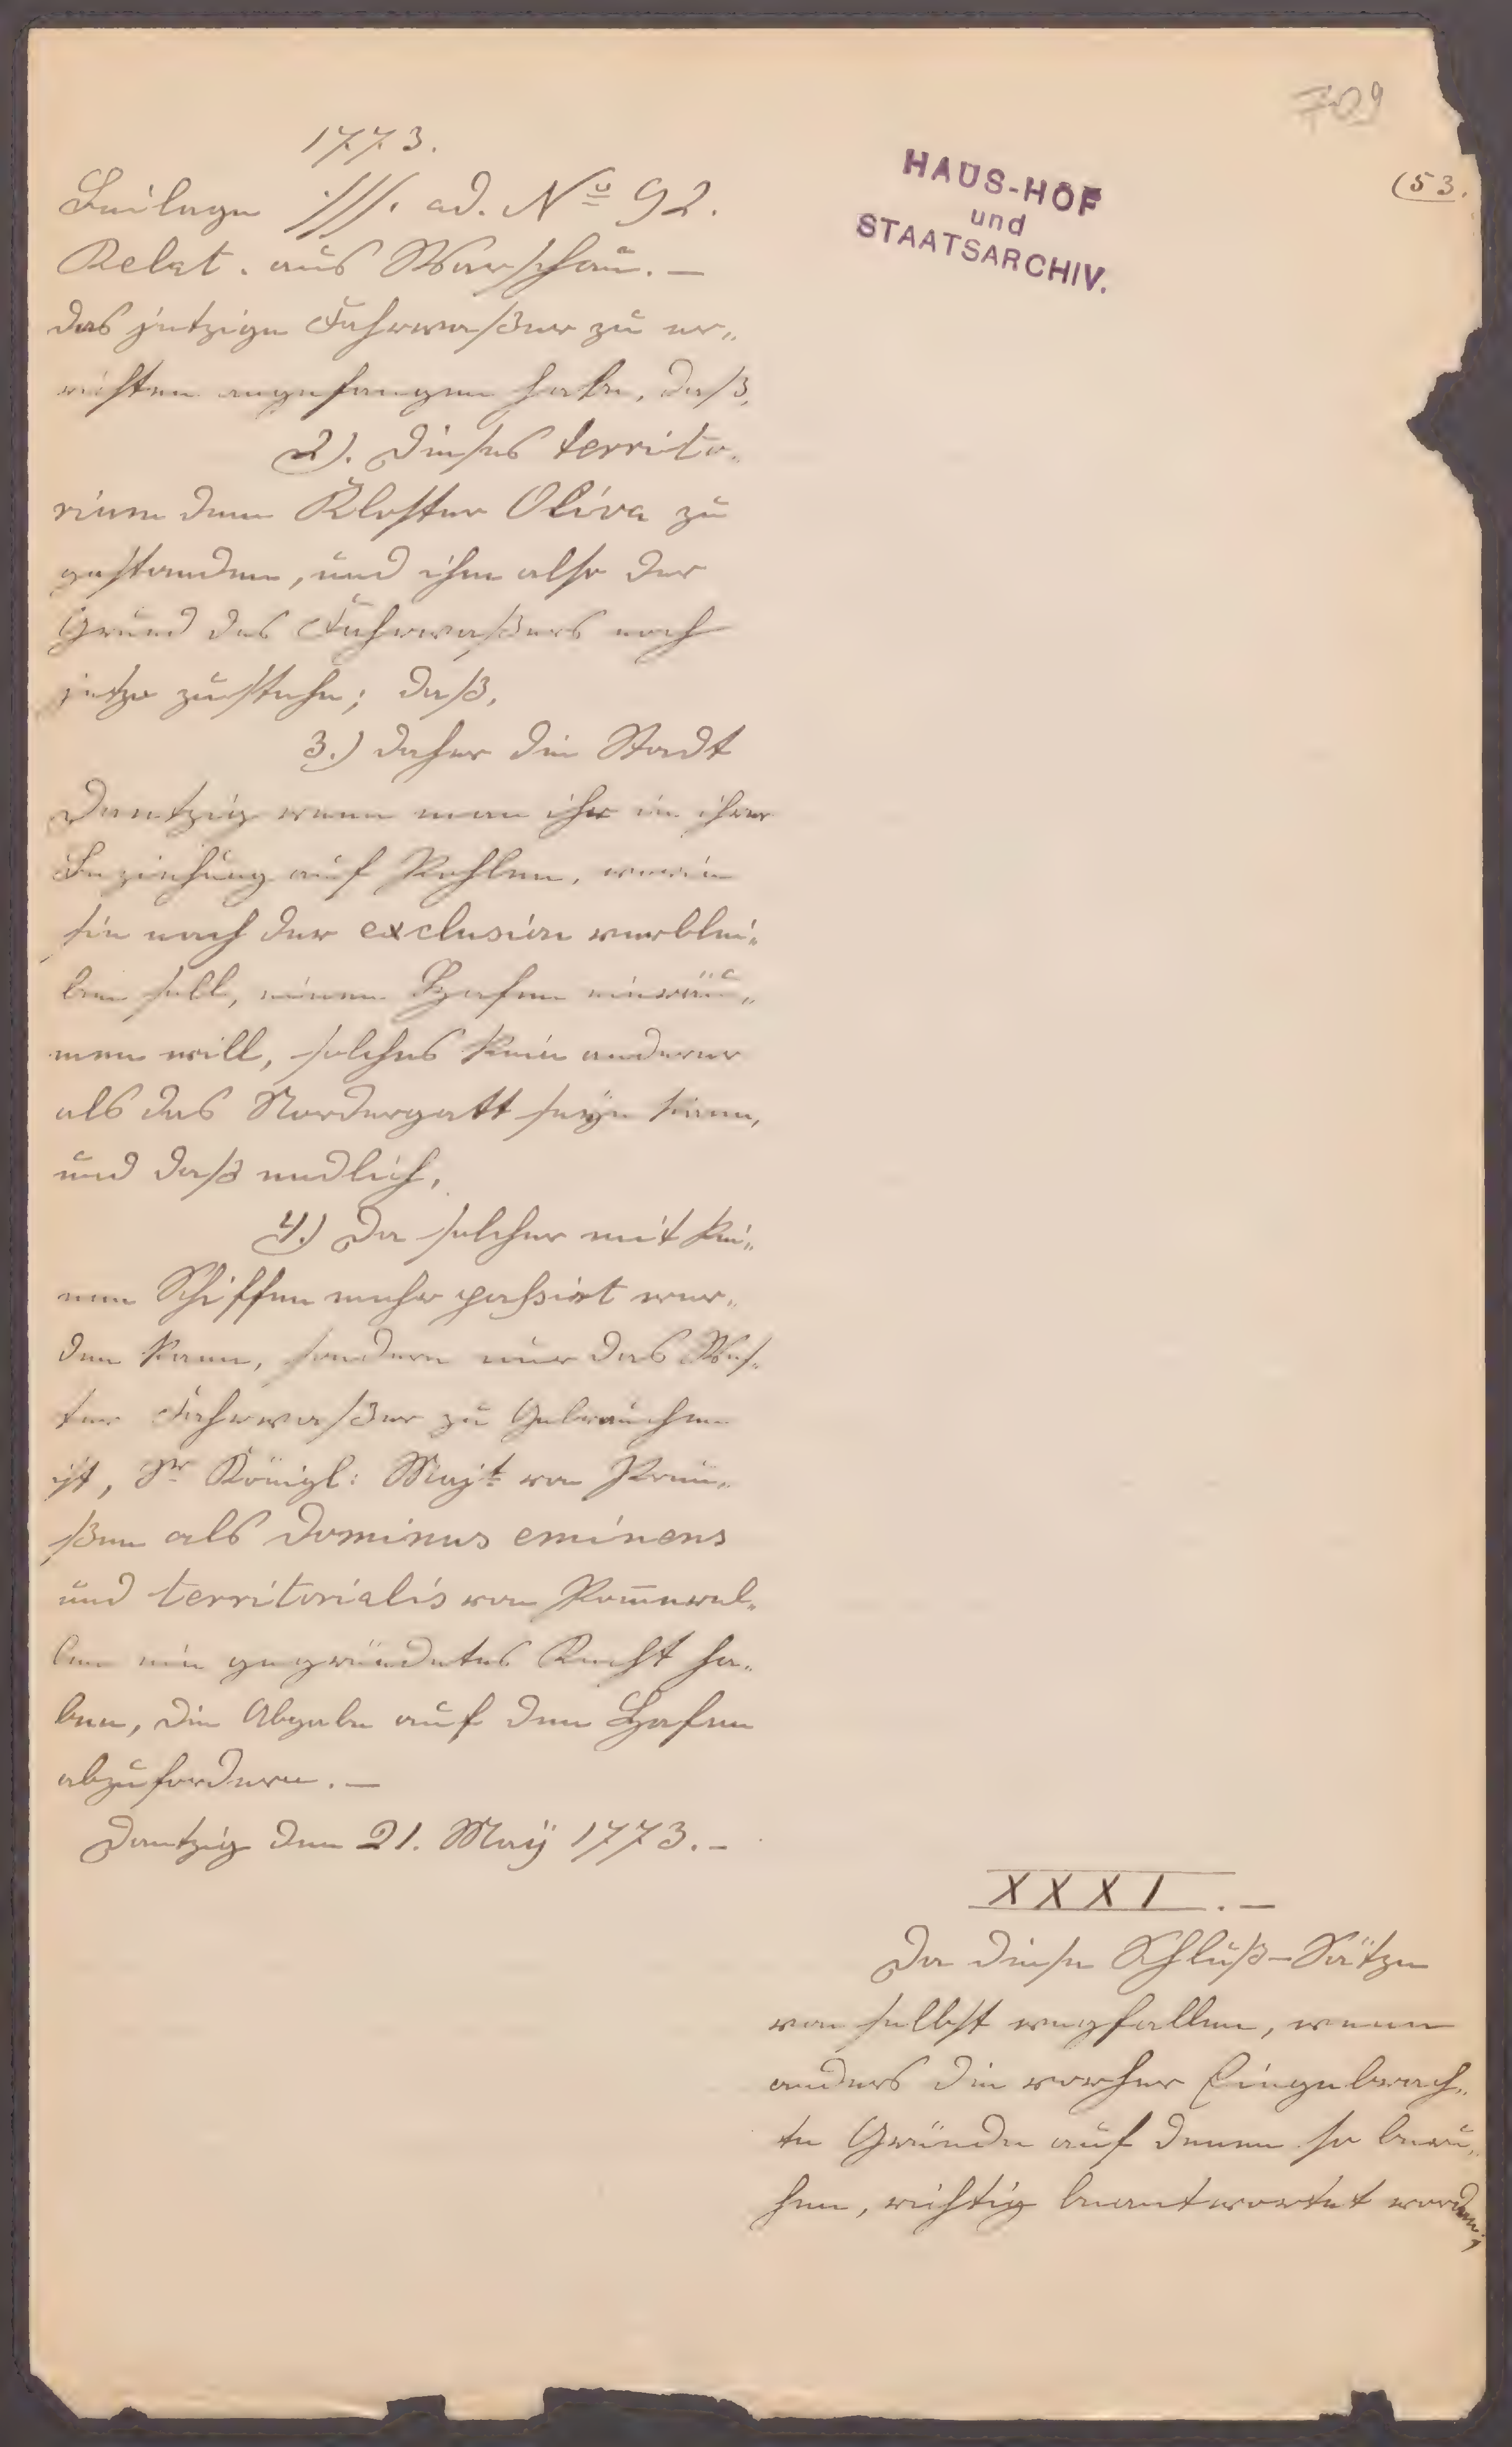 709
(53.
HAUS-HOF
und
STAATSARCHIV.
1773.
Beilage ·///. ad. No 92.
Relat. aus Warschau. —
das jetzige Fahrwaßer zu er„
richten angefangen habe, daß,
2). Dieses territo„
rium dem Kloster Oliva zu
gestanden, und ihm also der
Grund des Fahrwaßers noch
jetzo zustehe; daß,
3.) daher die Stadt
Dantzig wenn man ihr in ihrer
Beziehung auf Pohlen, worin
sie nach der exclusion verblei„
ben soll, einen Hafen einräu„
men will, solches kein anderer
als das Nordergatt seyn kann,
und daß endlich,
4.) Da solcher mit kei„
nen Schiffen mehr paßirt wer„
den kann, sondern nur das Wes„
ter Fahrwaßer zu Gebrauchen
ist, Sr Königl: Majt von Preu„
ßen als Dominus eminens
und territorialis von Pom̅erel„
len ein gegründetes Recht ha„
ben, die Abgabe auf dem Hafen
abzufordern. —
Dantzig den 21. Maÿ 1773. –
XXXI. —
Da diese Schluß-Sätze
von selbst wegfallen, wenn
anders die vorher Eingebrach„
te Gründe auf denen sie beru„
hen, richtig beantwortet worden;